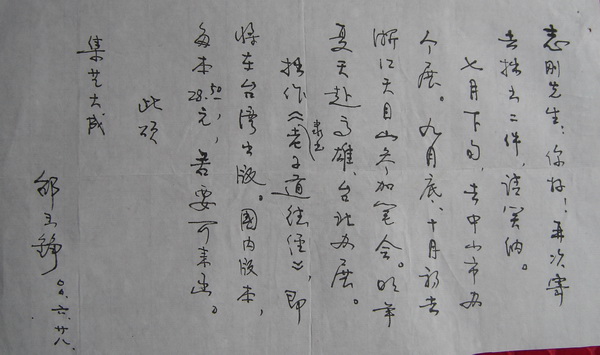 志刚先生：你好！再次寄
去拙书二件，请笑纳。
七月下旬，去中山市办
个展。九月底、十月初去
浙江天目山参加笔会。明年
夏天赴高雄、台北办展。
拙作《隶书老子道德经》，即
将在台湾出版。国内版本，
每本28.50元，若要可来函。
此颂
集艺大成
邹玉铮
六.廿八